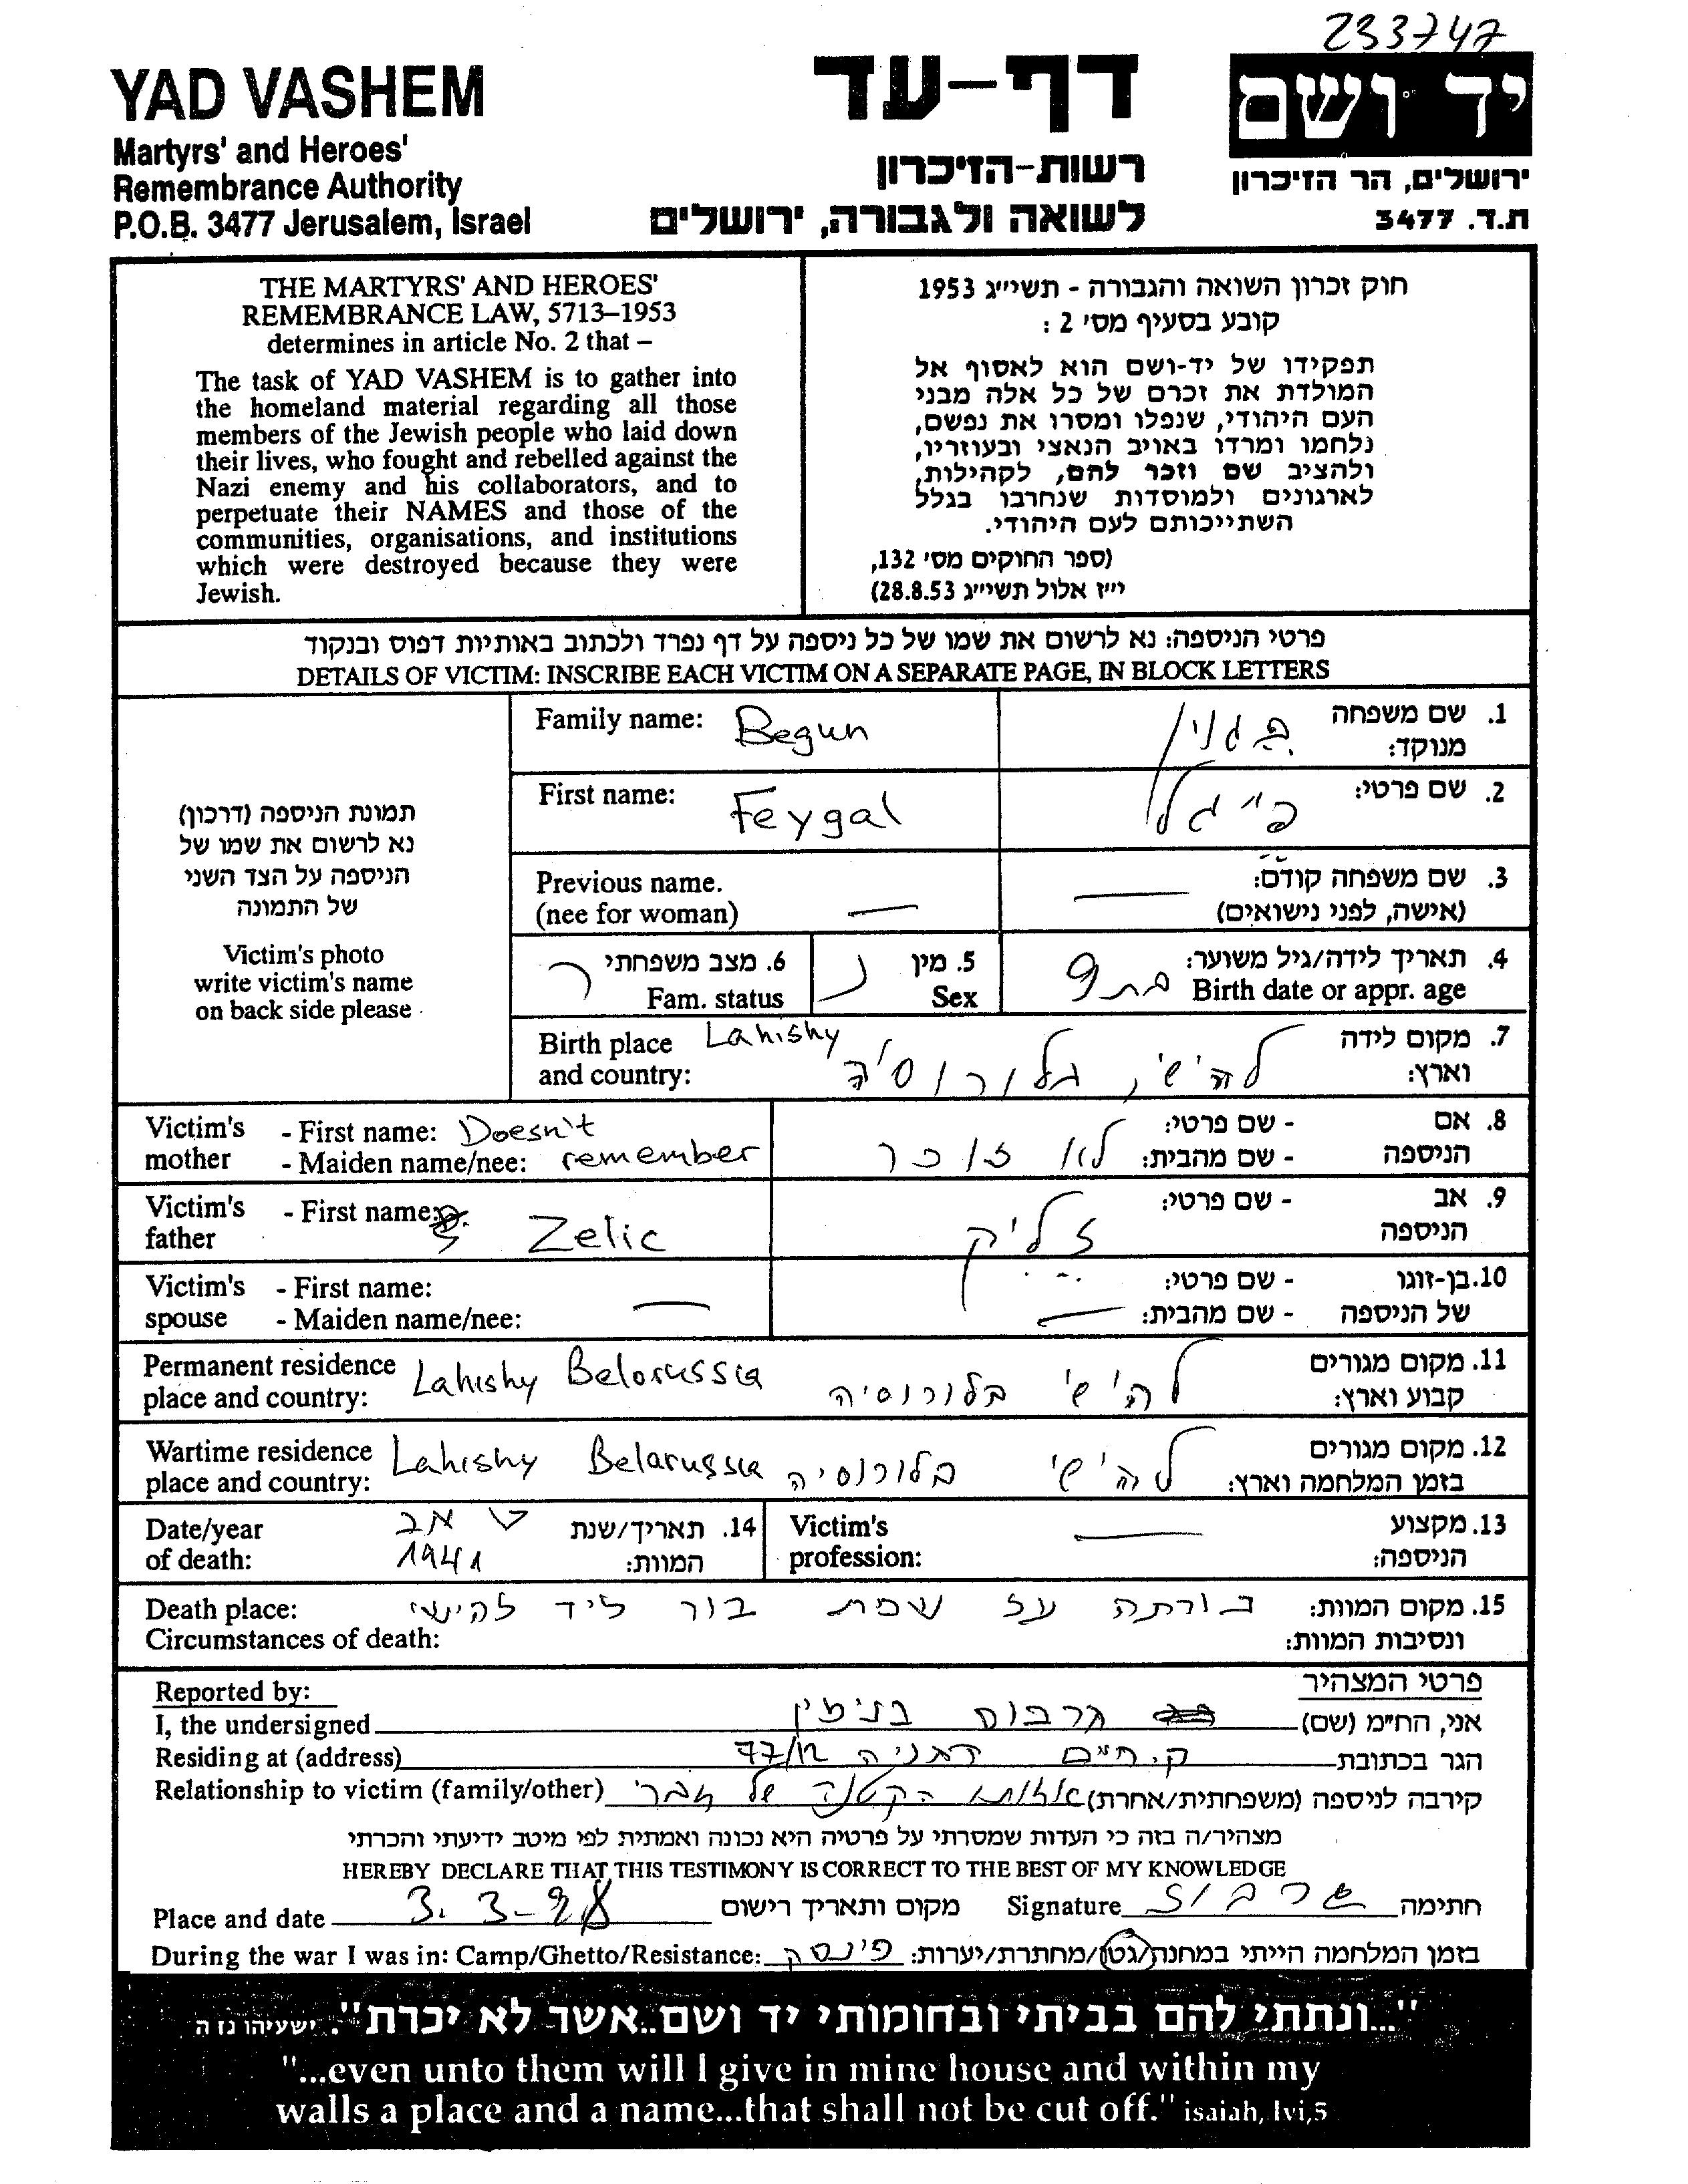 233747
YAD VASHEM
Martyrs' and Heroes'
Remembrance Authority
P.O.B. 3477 Jerusalem, Israel
דף-עד
רשות-הזיכרון
לשואה ולגבורה, ירושלים
יד ושם
ירושלים, הר הזיכרון
ת.ד. 3477
THE MARTYRS' AND HEROES'
REMEMBRANCE LAW, 5713–1953
determines in article No. 2 that –
The task of YAD VASHEM is to gather into
the homeland material regarding all those
members of the Jewish people who laid down
their lives, who fought and rebelled against the
Nazi enemy and his collaborators, and to
perpetuate their NAMES and those of the
communities, organisations, and institutions
which were destroyed because they were
Jewish.
חוק זכרון השואה והגבורה - תשי״ג 1953
קובע בסעיף מס׳ 2 :
תפקידו של יד-ושם הוא לאסוף אל
המולדת את זכרם של כל אלה מבני
העם היהודי, שנפלו ומסרו את נפשם,
נלחמו ומרדו באויב הנאצי ובעוזריו,
ולהציב שם וזכר להם, לקהילות,
לארגונים ולמוסדות שנחרבו בגלל
השתייכותם לעם היהודי.
(ספר החוקים מס׳ 132,
י״ז אלול תשי״ג 28.8.53)
פרטי הניספה: נא לרשום את שמו של כל ניספה על דף נפרד ולכתוב באותיות דפוס ובנקוד
DETAILS OF VICTIM: INSCRIBE EACH VICTIM ON A SEPARATE PAGE, IN BLOCK LETTERS
תמונת הניספה (דרכון)
נא לרשום את שמו של
הניספה על הצד השני
של התמונה
Victim's photo
write victim's name
on back side please
Family name: Begun
1. שם משפחה
מנוקד:
First name: Feygal
2. שם פרטי: פייגל
Previous name.
(nee for woman) —
3. שם משפחה קודם:
(אישה, לפני נישואים) —
6. מצב משפחתי ר
Fam. status
5. מין נ
Sex
4. תאריך לידה/גיל משוער:
Birth date or appr. age בת 9
Birth place Lahishy
and country:
7. מקום לידה
וארץ: להישי, בלורוסיה
Victim's mother - First name: Doesn't
- Maiden name/nee: remember
8. אם הניספה - שם פרטי:
- שם מהבית: לא זוכר
Victim's father - First name: Zelic
9. אב הניספה - שם פרטי: זליק
Victim's spouse - First name:
- Maiden name/nee: —
10. בן-זוגו של הניספה - שם פרטי:
- שם מהבית: —
Permanent residence
place and country: Lahishy Belorussia
11. מקום מגורים
קבוע וארץ: להישי בלורוסיה
Wartime residence
place and country: Lahishy Belarussia
12. מקום מגורים
בזמן המלחמה וארץ: להישי בלורוסיה
Date/year
of death:
ט אב
1941
14. תאריך/שנת
המוות:
Victim's
profession: —
13. מקצוע
הניספה:
Death place:
Circumstances of death:
15. מקום המוות:
ונסיבות המוות: נורתה על שפת בור ליד להישי
פרטי המצהיר
Reported by:
I, the undersigned גרבוס בנימין אני, הח״מ (שם)
Residing at (address) ק. חיים דגניה 77/12 הגר בכתובת
Relationship to victim (family/other) אחותו הקטנה של חברי קירבה לניספה (משפחתית/אחרת)
מצהיר/ה בזה כי העדות שמסרתי על פרטיה היא נכונה ואמתית לפי מיטב ידיעתי והכרתי
HEREBY DECLARE THAT THIS TESTIMONY IS CORRECT TO THE BEST OF MY KNOWLEDGE
Place and date 3. 3-98 מקום ותאריך רישום Signature חתימה
During the war I was in: Camp/Ghetto/Resistance: פינסק בזמן המלחמה הייתי במחנה/גטו/מחתרת/יערות:
"...ונתתי להם בביתי ובחומותי יד ושם..אשר לא יכרת". ישעיהו נו ה
"...even unto them will I give in mine house and within my
walls a place and a name...that shall not be cut off." isaiah, lvi,5